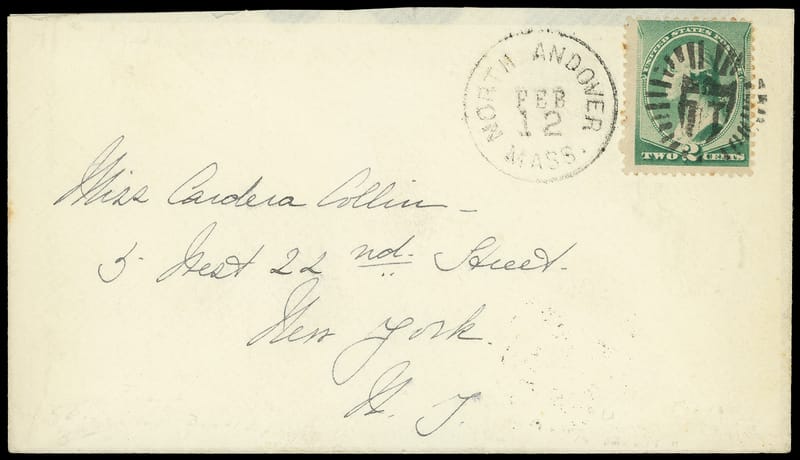 NORTH ANDOVER
FEB
12
MASS.
UNITED STATES POSTAGE
TWO 2 CENTS
Miss Cardera Collin
5 West 22 nd. Street.
New York.
N. Y.